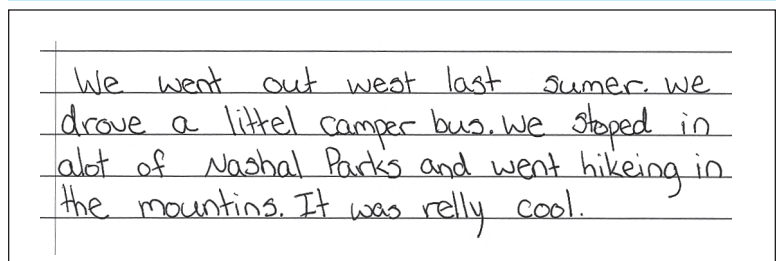 We went out west last sumer. we
drove a littel camper bus. We stoped in
alot of Nashal Parks and went hikeing in
the mountins. It was relly cool.